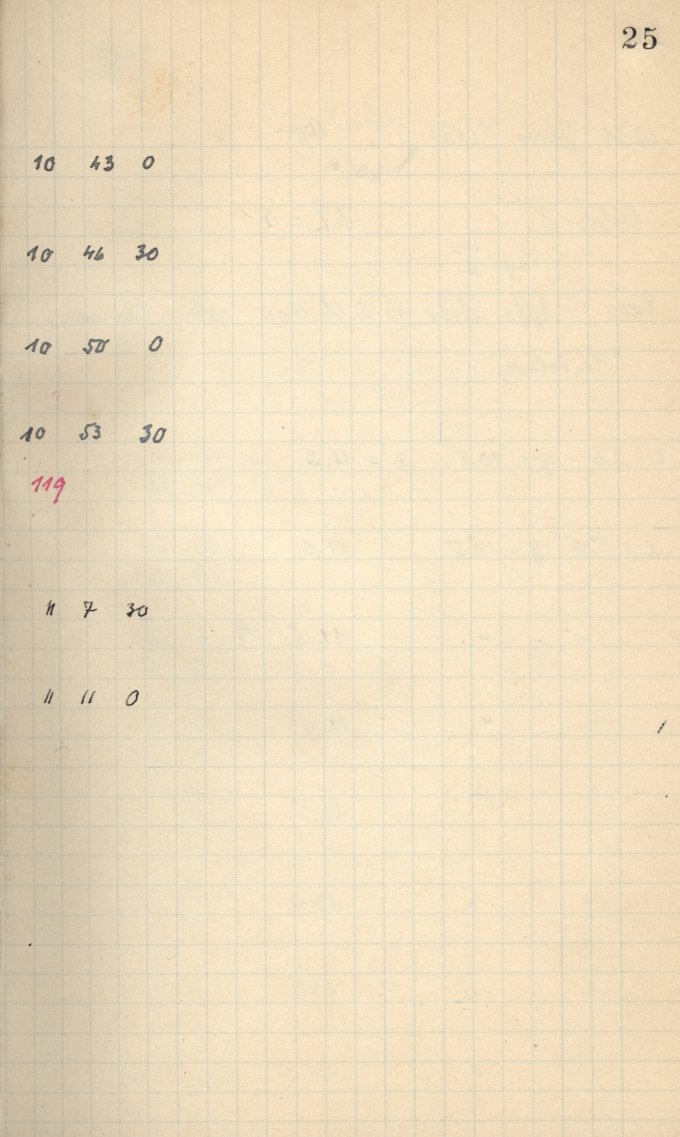 25
10 43 0
10 46 30
10 50 0
10 53 30
119
11 7 30
11 11 0